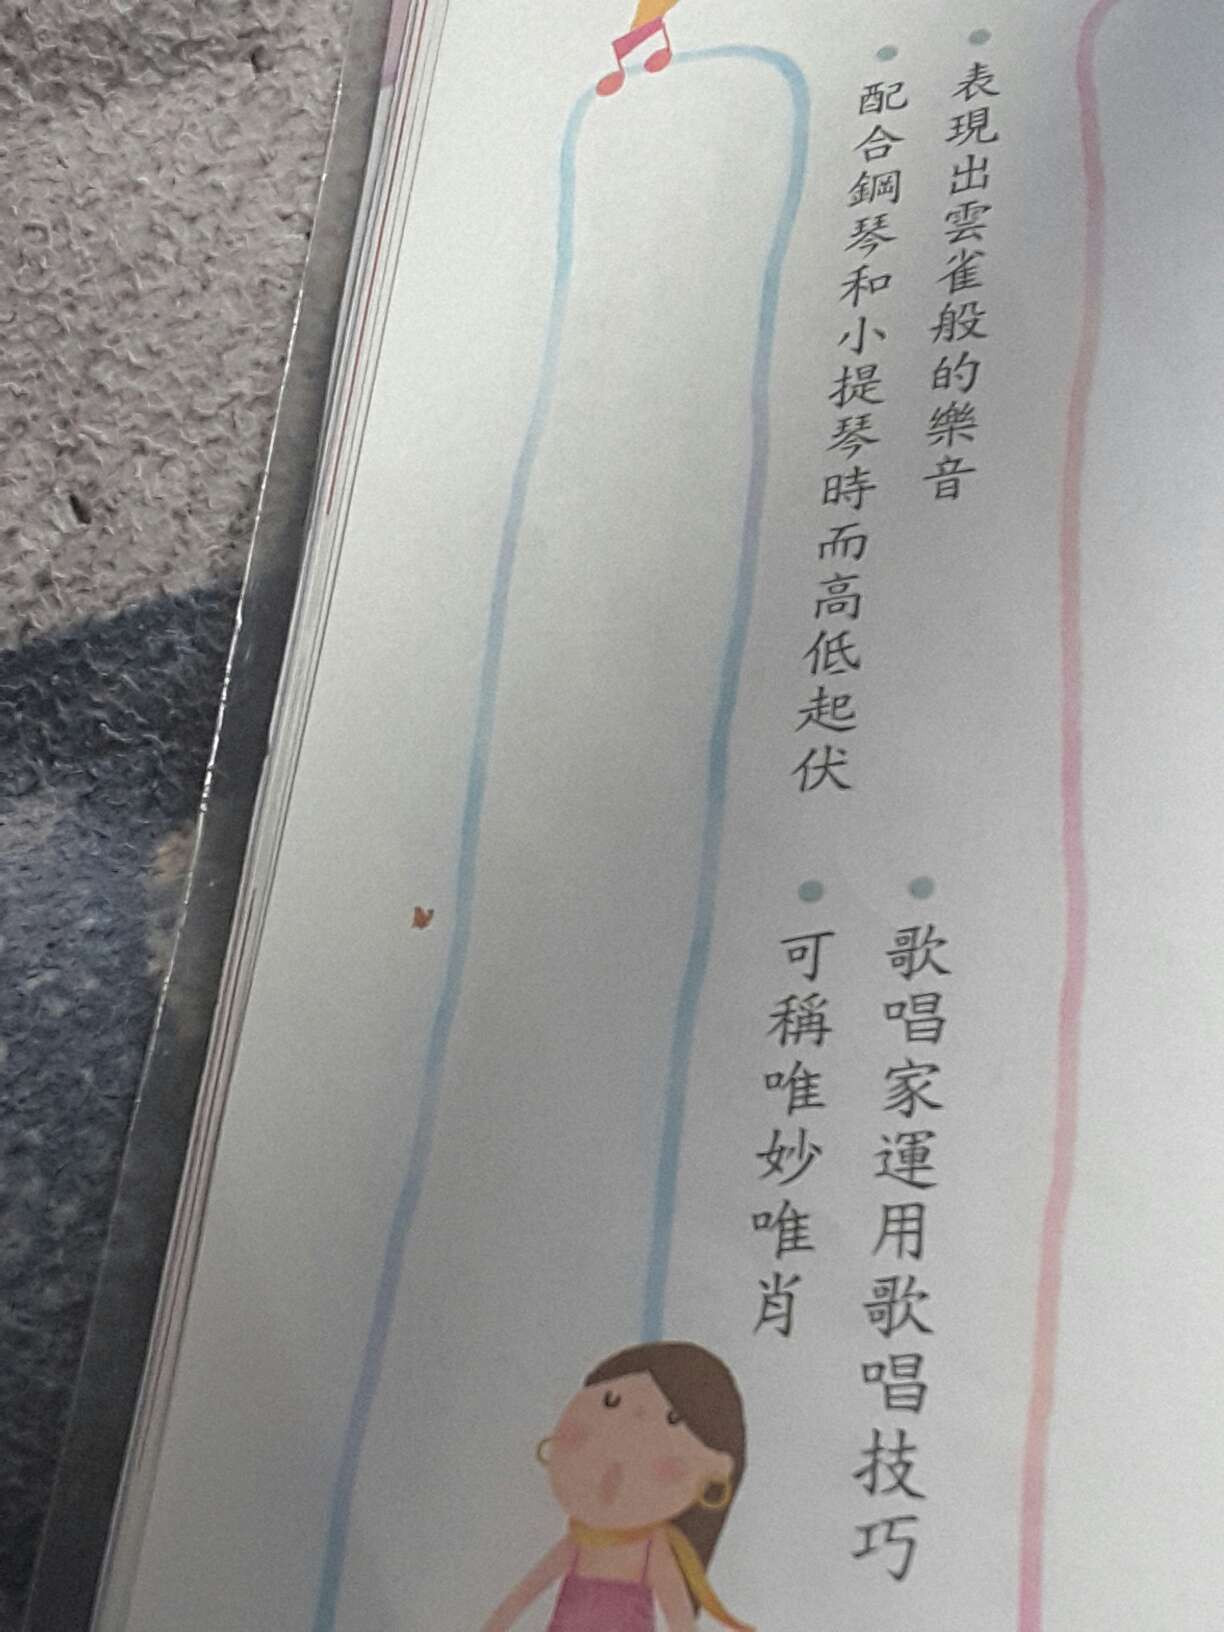 表現出雲雀般的樂音
配合鋼琴和小提琴時而高低起伏
歌唱家運用歌唱技巧
可稱唯妙唯肖